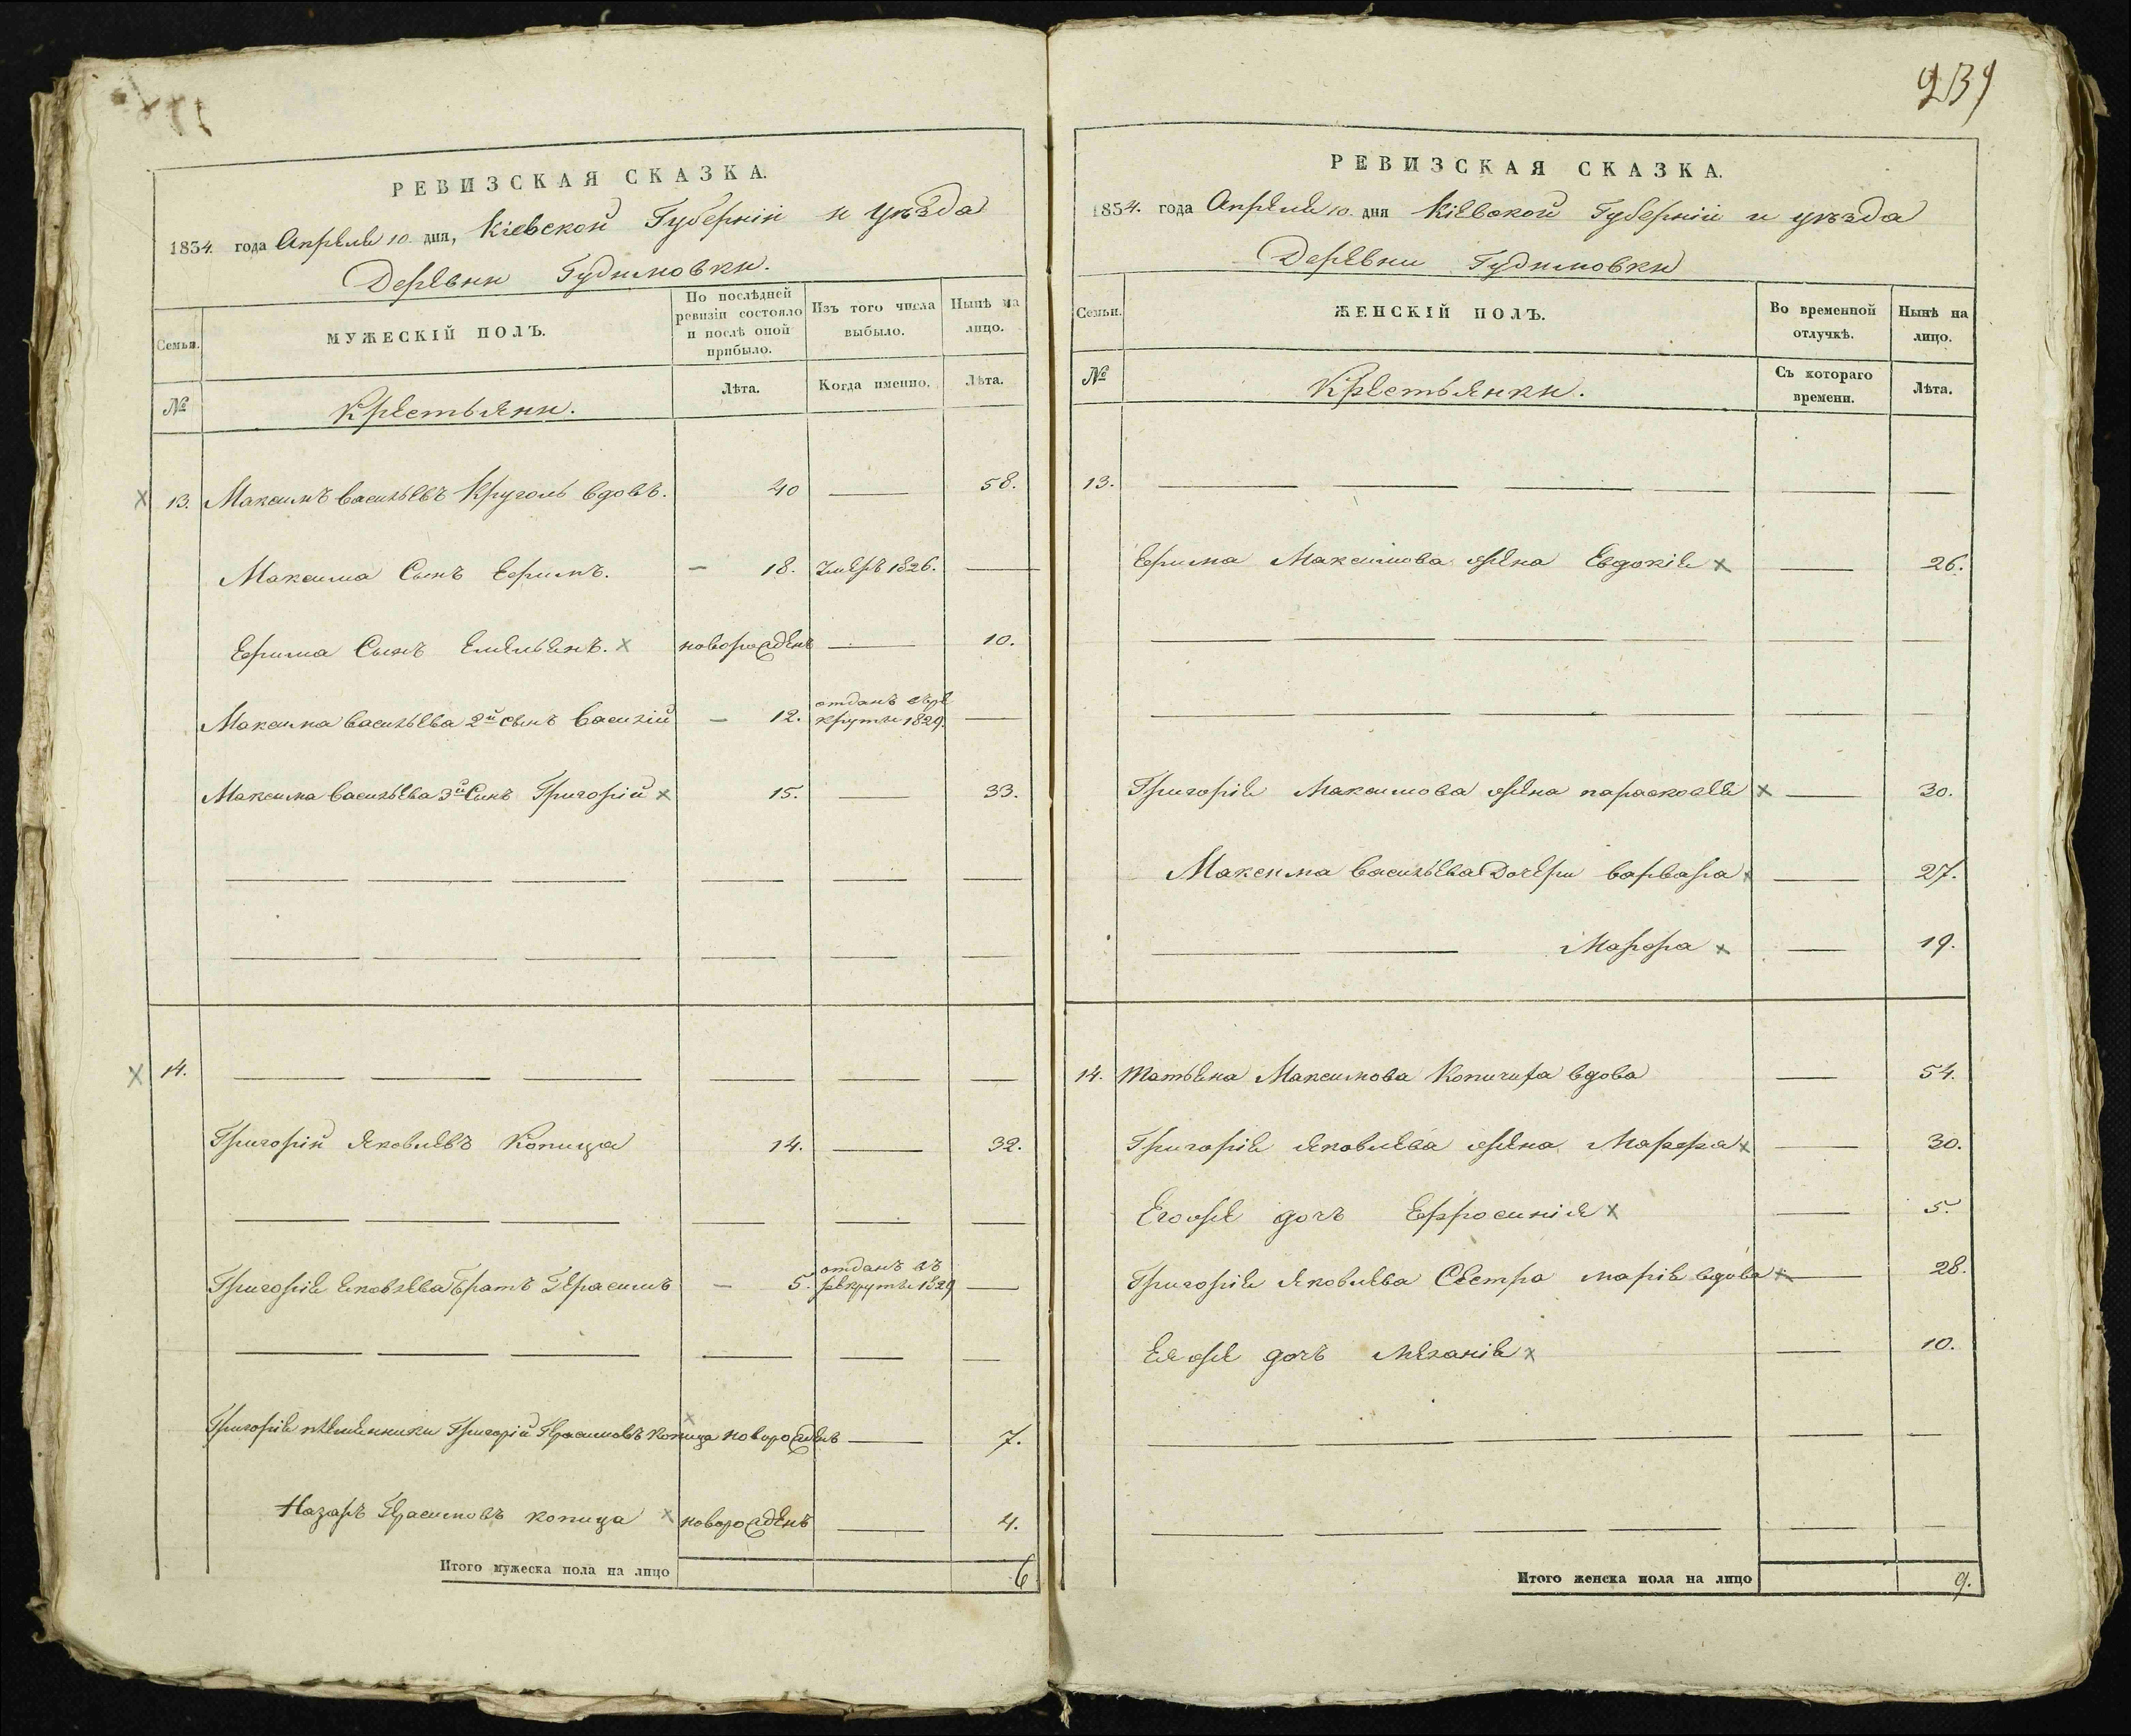 239
РЕВИЗСКАЯ СКАЗКА.
1834. года Апреля 10. дня, Кіевской Губерніи и уѣзда
Деревни Гудимовки.
Семьи.
МУЖЕСКІЙ ПОЛЪ.
По послѣдней ревизіи состояло и послѣ оной прибыло.
Изъ того числа выбыло.
Нынѣ на лицо.
№
Крестьяни.
Лѣта.
Когда именно.
Лѣта.
13. Максимъ Васильевъ Круголь вдовъ. 40 — 58.
Максима Сынъ Ефимъ. — 18. Умеръ 1826. —
Ефима Сынъ Емельянъ. × новорожденъ — 10.
Максима Васильева 2й сынъ Василій — 12. отданъ въ ре
круты 1829. —
Максима Васильева 3й Сынъ Григорій × 15. — 33.
14.
Григорій Яковлевъ Копица 14. — 32.
Григорія Яковлева Братъ Герасимъ — 5. отданъ въ
рекруты 1829 —
Григорія племянники Григорій Герасимовъ Копица новорожденъ — 7.
Назаръ Герасимовъ копица × новорожденъ — 4.
Итого мужеска пола на лицо 6
РЕВИЗСКАЯ СКАЗКА.
1834. года Апреля 10. дня Кіевской Губерніи и уѣзда
Деревни Гудимовки
Семьи.
ЖЕНСКІЙ ПОЛЪ.
Во временной отлучкѣ.
Нынѣ на лицо.
№
Крестьянки.
Съ котораго времени.
Лѣта.
13.
Ефима Максимова жена Евдокія × — 26.
Григорія Максимова жена параскевія × — 30.
Максима Васильева Дочери варвара × — 27.
Марфа × — 19.
14. Татьяна Максимова Копичиха вдова — 54.
Григорія Яковлева жена Марфа × — 30.
Егоже дочь Ефросинія × — 5.
Григорія Яковлева Сестра марія вдова × — 28.
Еяже дочь Меланія × — 10.
Итого женска пола на лицо 9.